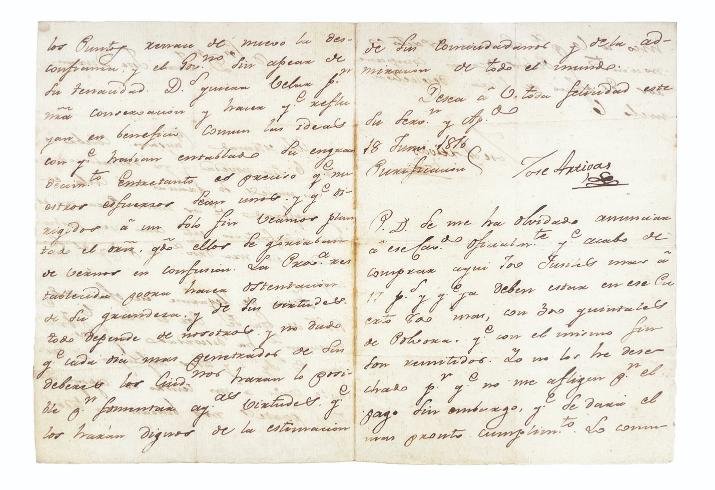 los Puntos renace de nuevo la des-
confianza, y el Gov.no sin apear de
su tenacidad. D. quiera velar p.r
nra conservacion y hacer q.e reflu-
yan en beneficio comun las ideas
con q.e habian entablado su engran
decim.to Entretanto es preciso q.e nu
estros esfuerzos sean unos, y q.e di-
rigidos á un solo fin veamos plan
tad el orn. q.do ellos se gloriaban
de vernos en confusion. La Prov.a res
tablecida podra hacer ostentacion
de su grandeza, y de sus virtudes.
todo depende de nosotros, y no dudo
q.e cada dia mas penetrados de sus
deberes los Ciud.nos haran lo posi-
ble p.r fomentar aq.as virtudes q.e
los harán dignos de la estimacion
de sus conciudadanos y de la ad-
miracion de todo el mundo.
Desea á V. toda felicidad este
su Serv.r y Ap.do
18 Junio 1816
Purificacion
Jose Artigas
P. D. Se me ha olvidado anunciar
á ese Cav.do q.e acabo de
comprar aqui 300 fusiles mas á
17 p.s y q.e ya deben estar en ese Pu
erto 300 mas, con 300 quintales
de Polvora. q.e con el mismo fin
son remitidos. Yo no los he dese-
chado p.r q.e no me afligen p.r el
pago sin embargo, q.e se dará el
mas pronto cumplim.to Lo comu-